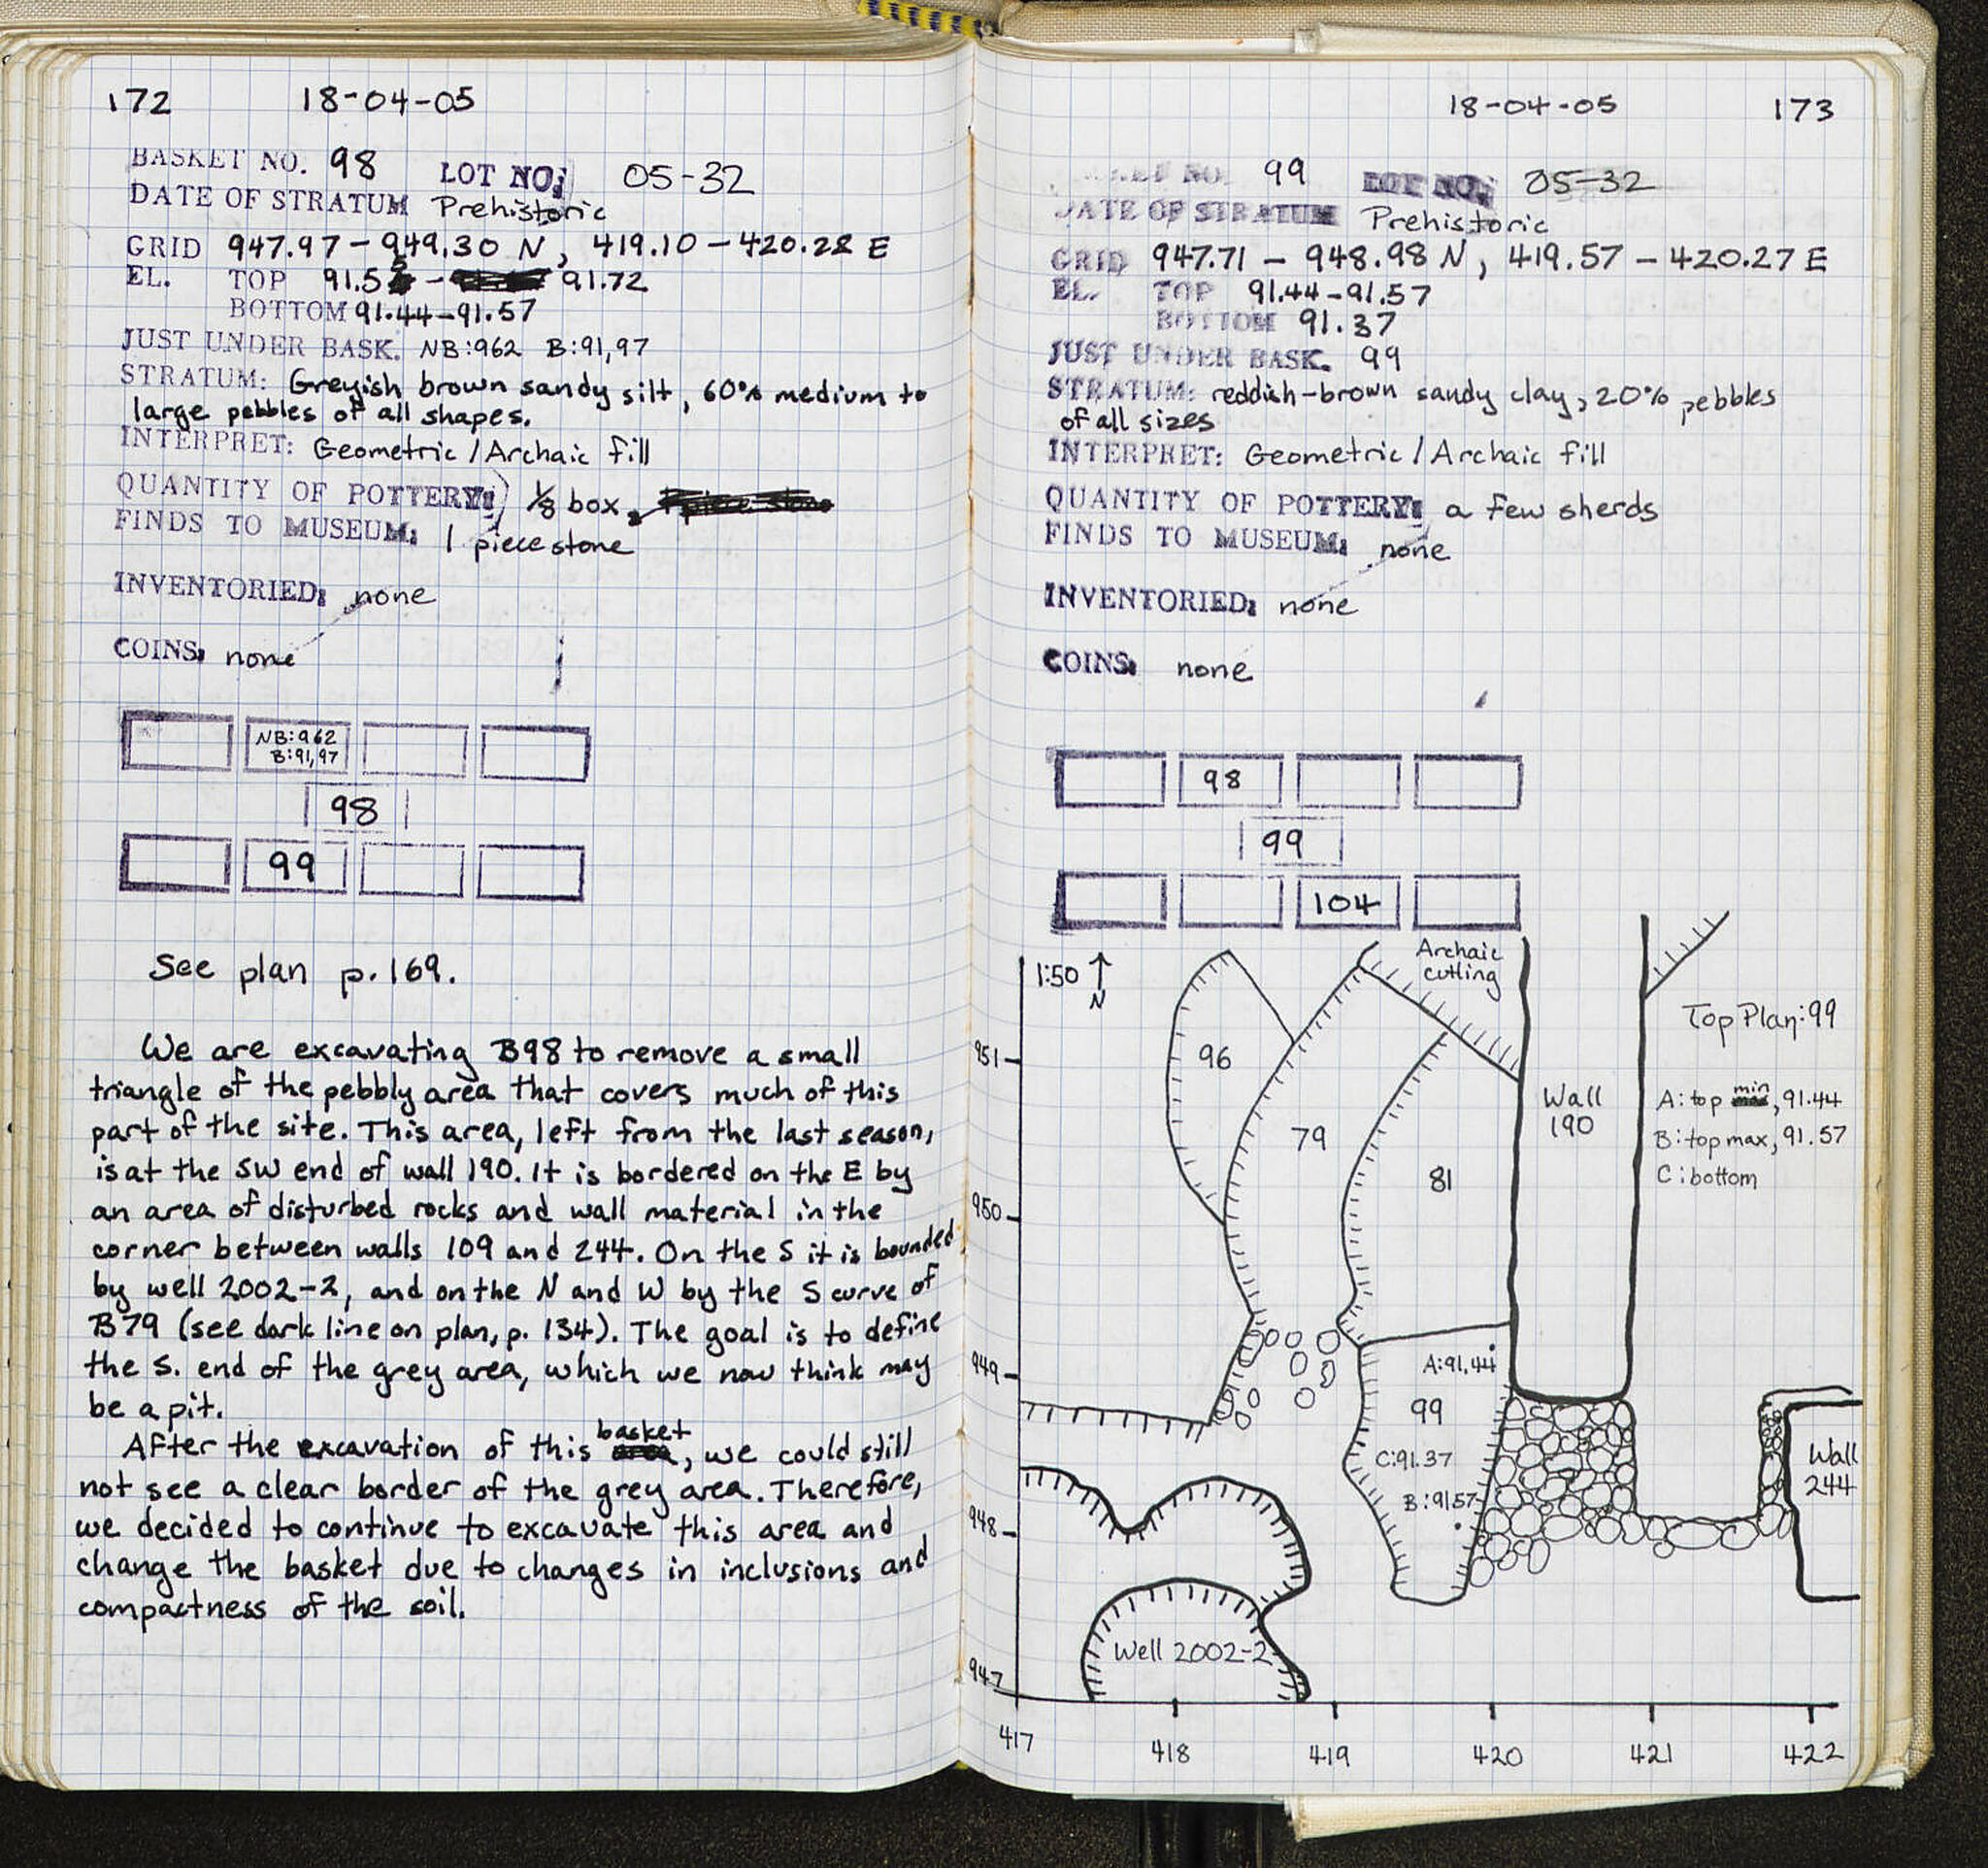 172 18-04-05
BASKET NO. 98 LOT NO: 05-32
DATE OF STRATUM Prehistoric
GRID 947.97-949.30 N, 419.10-420.28 E
EL. TOP 91.55 - 91.72
BOTTOM 91.44-91.57
JUST UNDER BASK. NB:962 B:91,97
STRATUM: Greyish brown sandy silt, 60% medium to
large pebbles of all shapes.
INTERPRET: Geometric/Archaic fill
QUANTITY OF POTTERY: 1/8 box, 1 piece stone
FINDS TO MUSEUM: 1 piece stone
INVENTORIED: none
COINS: none
NB:962
B:91,97
98
99
See plan p.169.
We are excavating B98 to remove a small
triangle of the pebbly area that covers much of this
part of the site. This area, left from the last season,
is at the SW end of wall 190. It is bordered on the E by
an area of disturbed rocks and wall material in the
corner between walls 109 and 244. On the S it is bounded
by well 2002-2, and on the N and W by the S curve of
B79 (see dark line on plan, p. 134). The goal is to define
the S. end of the grey area, which we now think may
be a pit.
After the excavation of this basket, we could still
not see a clear border of the grey area. Therefore,
we decided to continue to excavate this area and
change the basket due to changes in inclusions and
compactness of the soil.
18-04-05 173
BASKET NO. 99 LOT NO. 05-32
DATE OF STRATUM Prehistoric
GRID 947.71 - 948.98 N, 419.57-420.27 E
EL. TOP 91.44-91.57
BOTTOM 91.37
JUST UNDER BASK. 99
STRATUM: reddish-brown sandy clay, 20% pebbles
of all sizes
INTERPRET: Geometric/Archaic fill
QUANTITY OF POTTERY: a few sherds
FINDS TO MUSEUM: none
INVENTORIED: none
COINS: none
98
99
104
1:50 N
Archaic
cutting
Top Plan: 99
951
96
Wall
190
A: top min, 91.44
79
B: top max, 91.57
81
C: bottom
950
949
A:91.44
99
C:91.37
Wall
244
B:91.57
948
Well 2002-2
947
417 418 419 420 421 422